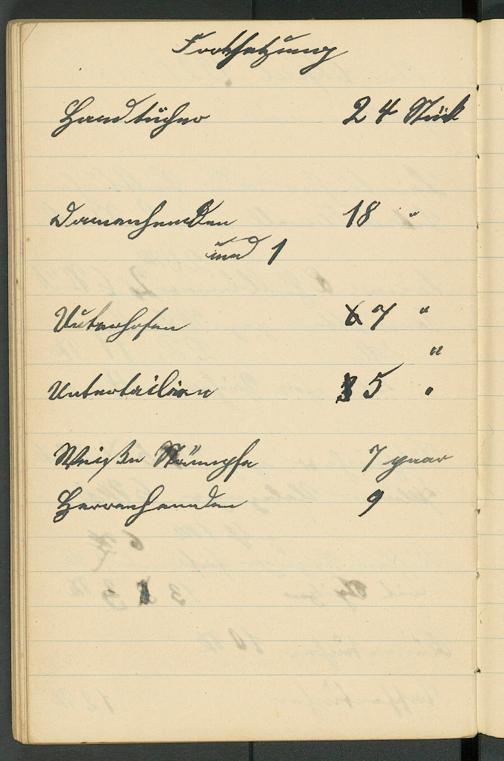 Fortsetzung
Handtücher 24 Stük
Damenhemden 18 "
und 1
Unterhosen 7 "
"
Untertailien 5 "
Weiße Strümpfe 7 paar
Herrenhemden 9